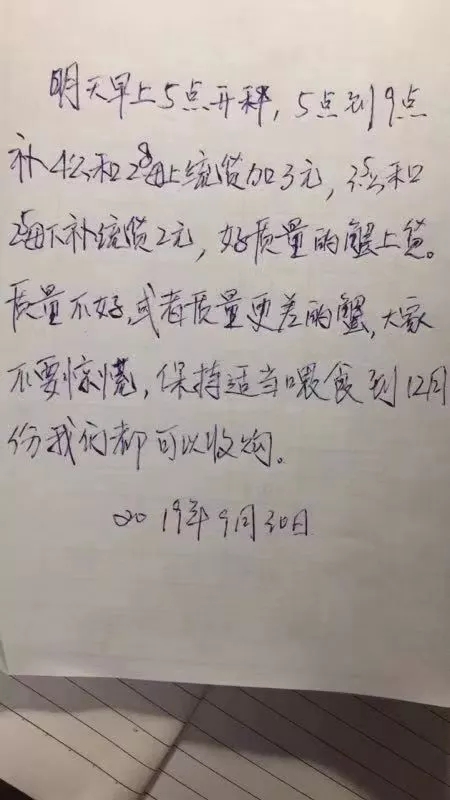 明天早上5点开秤，5点到9点
补4公和2.8母上统货加3元，3.5公和
2.5母下补统货2元，好质量的蟹上货。
质量不好，或者质量更差的蟹，大家
不要惊慌，保持适当喂食到12月
份我们都可以收购。
2019年9月30日